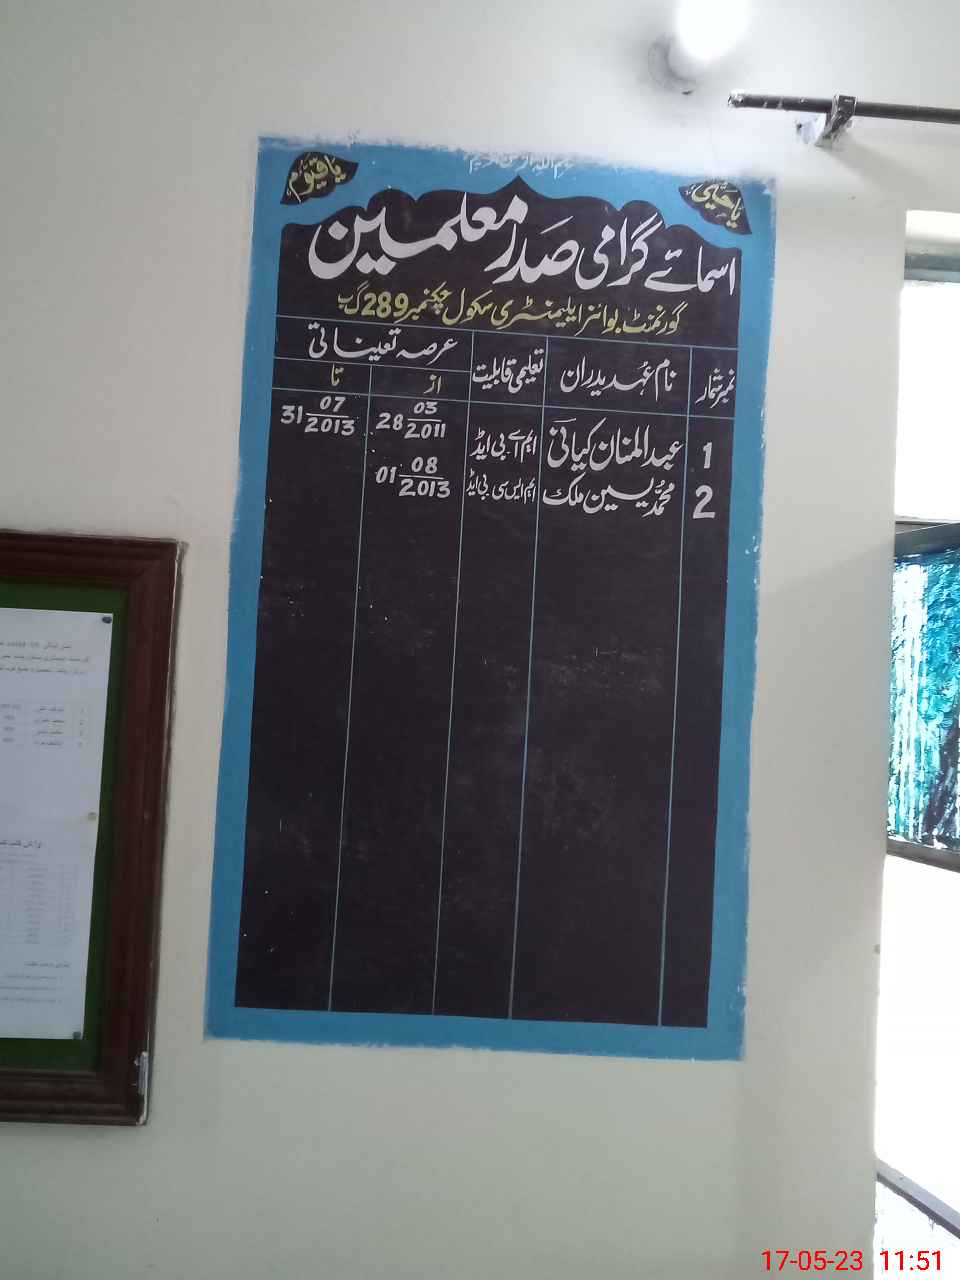 بسم اللہ الرحمن الرحیم
یا حَیُّ
یا قیّوم
اسمائے گرامی صَدر معلمین
گورنمنٹ بوائز ایلیمنٹری سکول چکنمبر 289 گ ب
نمبر شمار نام عُہدیدران تعلیمی قابلیت عرصہ تعیناتی
از تا
1 عبدالمنان کیانی ایم اے بی ایڈ 28 03/2011 31 07/2013
2 محمّد یسین ملک ایم ایس سی بی ایڈ 01 08/2013
17-05-23 11:51